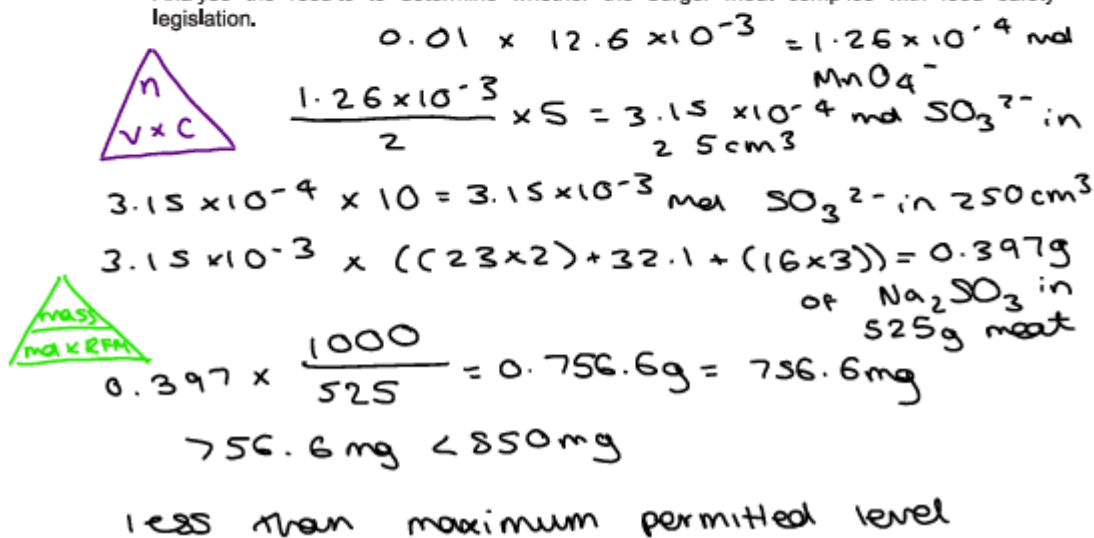 legislation.
0.01 x 12.6 x10⁻³ = 1.26 x 10⁻⁴ mol
MnO₄⁻
n
V x C
1.26 x10⁻³ / 2 x 5 = 3.15 x10⁻⁴ mol SO₃²⁻ in
25cm³
3.15 x10⁻⁴ x 10 = 3.15 x10⁻³ mol SO₃²⁻ in 250cm³
3.15 x10⁻³ x ((23x2) + 32.1 + (16x3)) = 0.397g
of Na₂SO₃ in
525g meat
mass
mol x RFM
0.397 x 1000 / 525 = 0.756.6g = 756.6mg
756.6 mg < 850mg
less than maximum permitted level